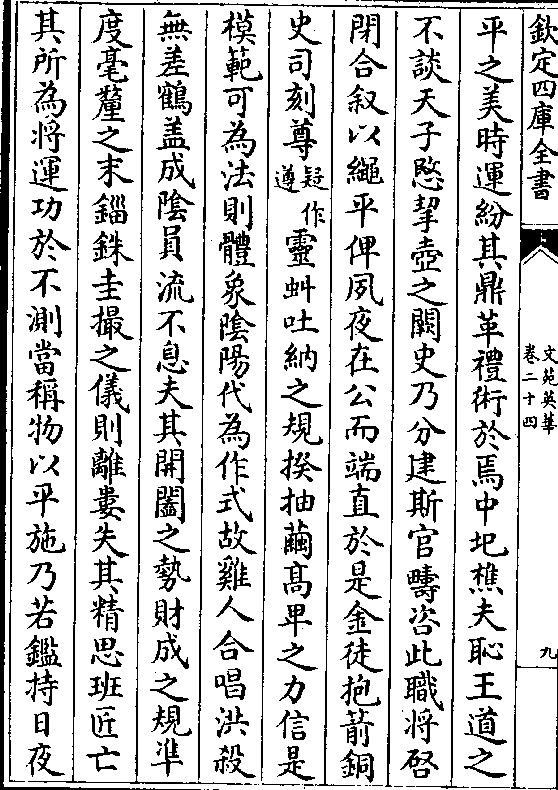 欽定四庫全書
文苑英華
卷二十四
九
平之美時運紛其鼎革禮術於焉中圮樵夫恥王道之
不談天子愍挈壺之闕史乃分建斯官疇咨此職将啓
閉合叙以繩平俾夙夜在公而端直於是金徒抱箭銅
史司刻尊疑作遵靈虯吐納之規揆抽繭髙卑之力信是
模範可為法則體象隂陽代為作式故雞人合唱洪殺
無差鶴盖成隂員流不息夫其開闔之勢財成之規凖
度毫釐之末錙銖圭撮之儀則離婁失其精思班匠亡
其所為将運功於不測當稱物以平施乃若鑑持日夜